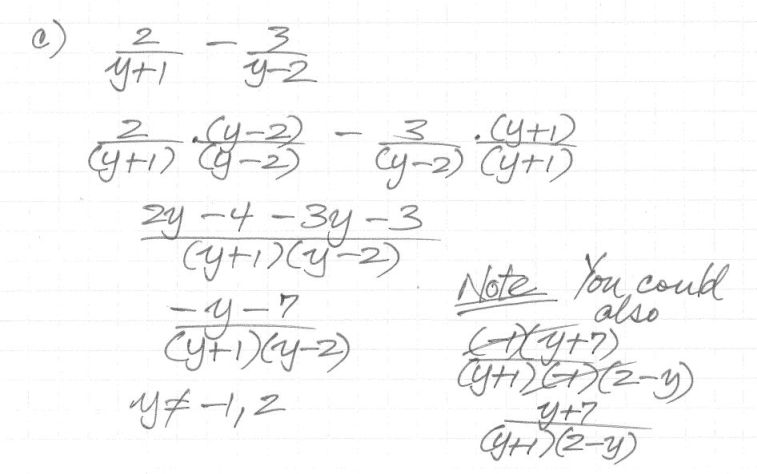 c) 2/(y+1) - 3/(y-2)
2/(y+1) · (y-2)/(y-2) - 3/(y-2) · (y+1)/(y+1)
(2y - 4 - 3y - 3)/((y+1)(y-2))
(-y - 7)/((y+1)(y-2))
y ≠ -1, 2
Note You could
also
(-1)(y+7)/((y+1)(-1)(2-y))
(y+7)/((y+1)(2-y))